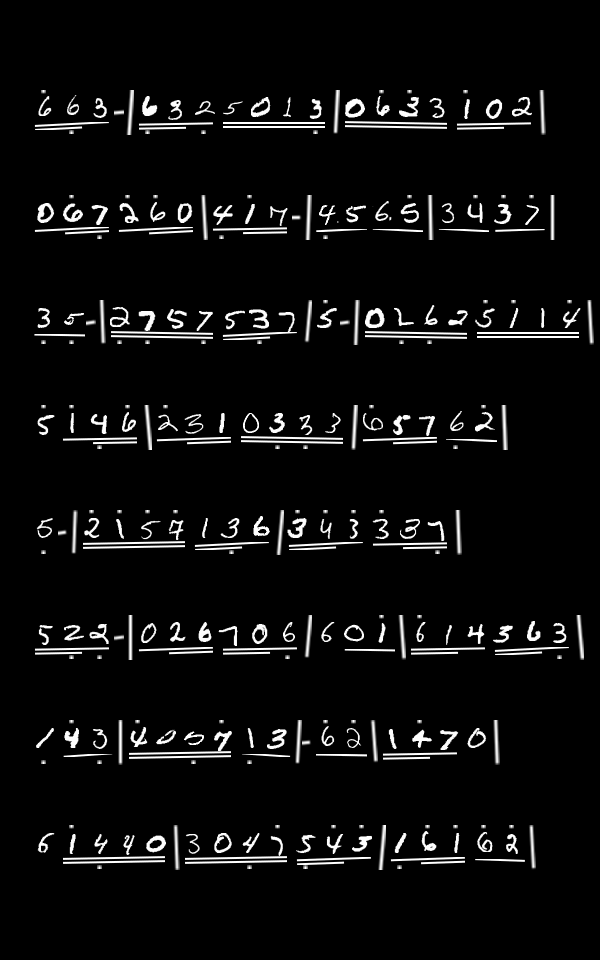 663-|6325013|0633102
067260|417-|4.56.5|3437
35-|2757537|5-|02625114
5146|2310333|65762
5-|2157136|343337
522-|026706|601|614363
143|405713|-62|1470
61440|3047543|16162